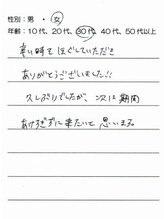 性別：男 ・ 女
年齢：10代、20代、30代、40代、50代以上
寒い時で ほぐしていただき
ありがとうございました!!
久しぶりでしたが 次は 期間
あけすぎずに 来たいと 思います。